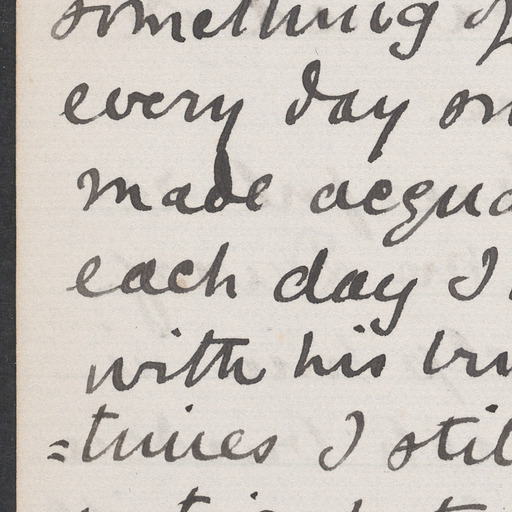 something of
every day on
made acqua
each day I
with his bru
=times I stil